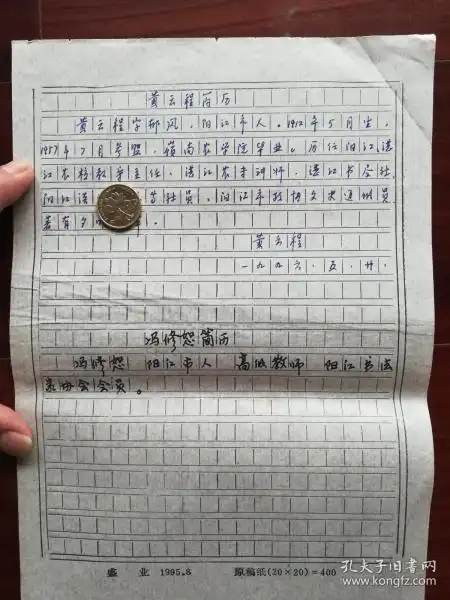 黄云程简历
黄云程字郁风，阳江市人。1912年5月生，
1957年7月参盟，岭南农学院毕业。历任阳江漠
江农校教学主任、漠江农专讲师，漠江书会社、
阳江漠 等社员，阳江市政协文史通讯员
著有夕
黄云程
一九九六·五·廿·
冯修恕简历
冯修恕 阳江市人 高级教师 阳江书法
家协会会员。
盛 业 1995.8 原稿纸(20×20)=400
孔夫子旧书网
www.kongfz.com